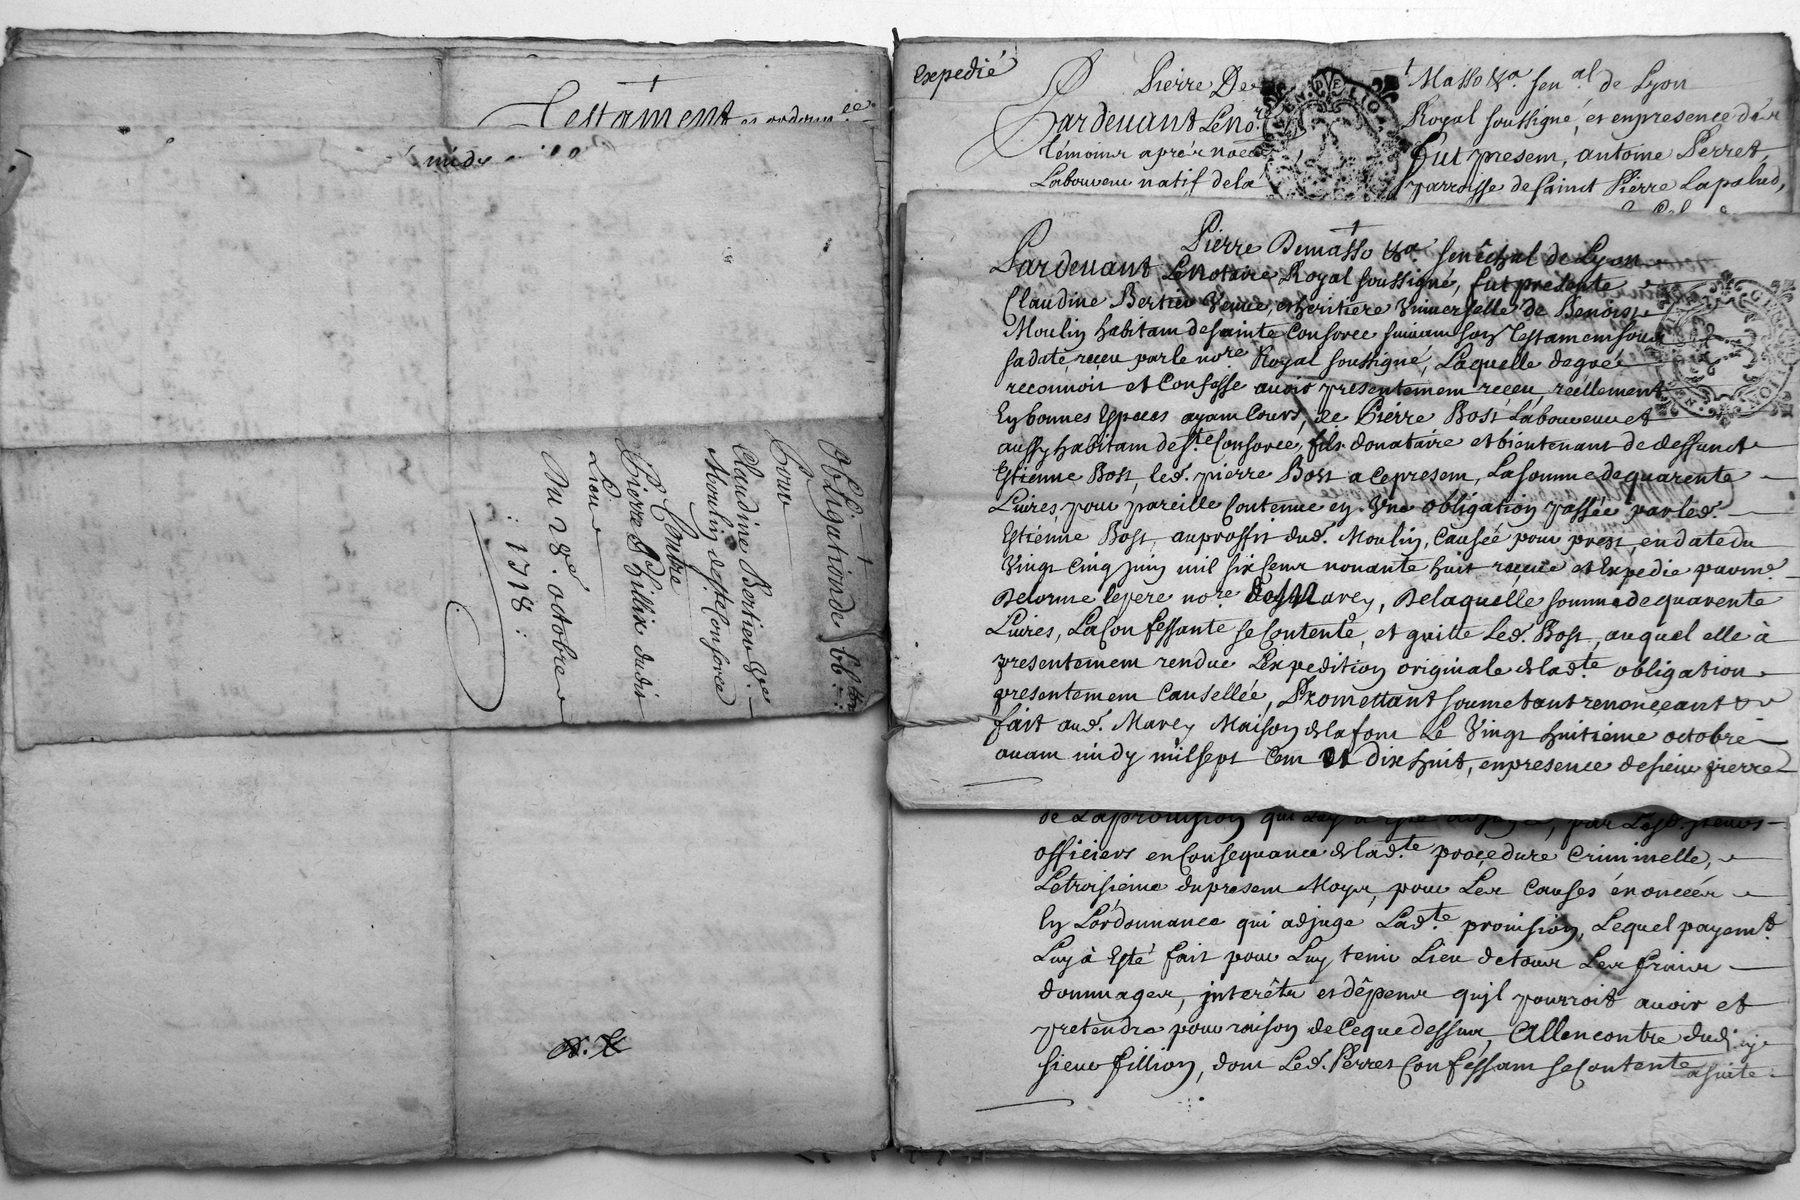 Testament et ordonn.ce
midy
Obligation de 66 : lt
Pour
Claudine Bertieu v.ve
Moulin de S.te Consorce
Contre
Pierre Phillix dudit
Lieu
Du 28.e octobre
: 1718 :
Expedié
Pierre De Masso &a. sen.al de Lyon
Pardevant Le no.re Royal soussigné, et en presence des
témoins aprés només fut present, antoine Perret,
Laboureur natif de la parroisse de sainct Pierre Lapalud,
Pierre Demasso &a. senêchal de Lyon
Pardevant Le notaire Royal soussigné, fut presente
Claudine Bertieu veuve, et heritiere Universelle de Benoist
Moulin habitant de sainte Consorce suivant son Testament sous
sa daté, reçeu par le no.re Royal soussigné, Laquelle de gré
reconnoit et Confesse avoir presentement reçeu, reellement
En bonnes Especes ayant Cours, de Pierre Bost Laboureur et
aussy habitant de S.te Consorce, fils donataire et bientenant de deffunct
Estienne Bost, led. pierre Bost a ce present, La somme de quarente
Livres, pour pareille Contenue en Une obligation passée par led.
Estienne Bost, au proffit dud. Moulin, Causée pour prest, en date du
Vingt Cinq juin mil six Cent nonante huit reçeue et Expedie par me.
Delorme le pere no.re a Marcy, De laquelle somme de quarente
Livres, La Confessante se Contente, et quitte Led. Bost, auquel elle à
presentement rendue L'expedition originale de lad.te obligation
presentement Cansellée, Promettant soumetant renonçeant &
fait aud. Marcy Maison de lafont Le Vingt huitiéme octobre
avant midy mil sept Cent et dix huit, en presence de sieur pierre
de La provision
officiers en Consequance de lad.te procedure Criminelle,
Le troisiéme du present Moys, pour Les Causes énoncées
En L'ordonnance qui adjuge Lad.te provision, Lequel payem.t
Luy à Esté fait pour Luy tenir Lieu de tous Les frais
dommages, interêts et dêpens qu'jl pourroit avoir et
pretendre pour raison de Ce que dessus, allencontre dudit
sieur fillion, dont Led. Perret Confessant se Contente